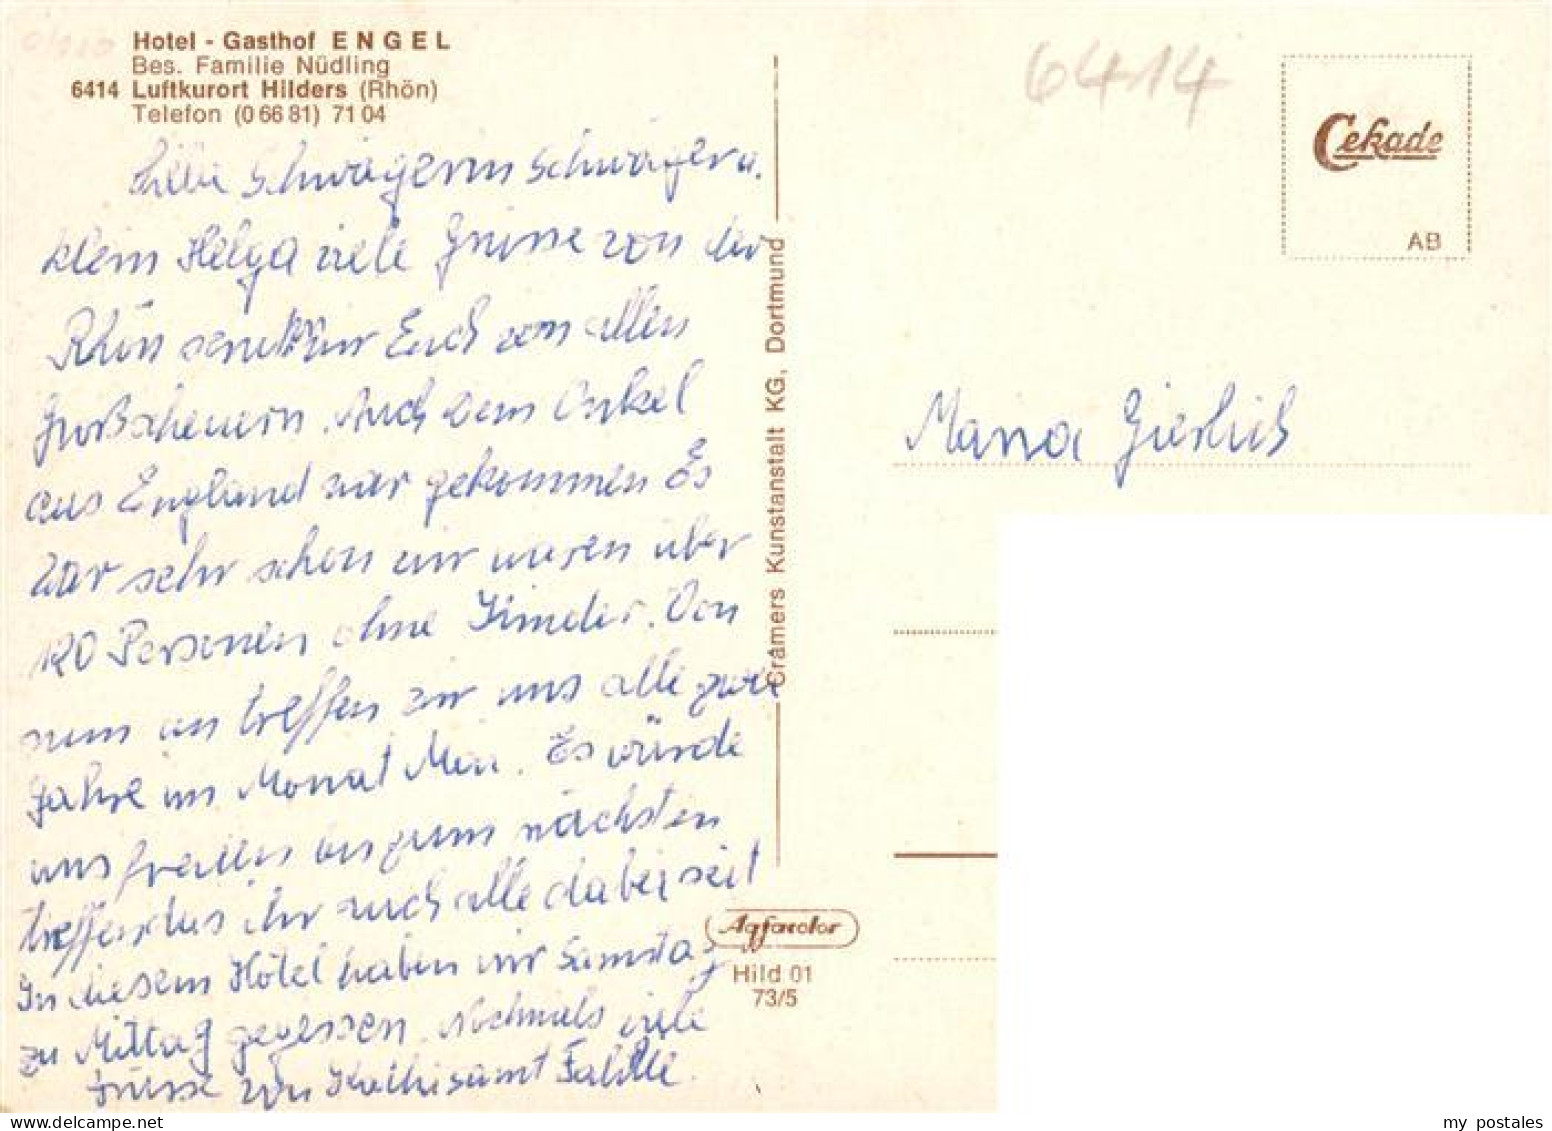 Hotel - Gasthof ENGEL
Bes. Familie Nüdling
6414 Luftkurort Hilders (Rhön)
Telefon (0 66 81) 71 04
Liebe Schwägerin Schwager u.
klein Helga viele Grüsse von der
Rhön senden wir Euch von allen
Großscheuern. Auch dem Onkel
aus England war gekommen Es
war sehr schön wir waren über
120 Personen ohne Kinder. Von
nun an treffen wir uns alle zwei
Jahre im Monat Mai. Es würde
uns freuen bis zum nächsten
treffen das ihr auch alle dabei seit
In diesem Hotel haben wir Samstag
zu Mittag gegessen. Nochmals viele
Grüsse von Kathi samt Familie.
Crämers Kunstanstalt KG, Dortmund
Agfacolor
Hild 01
73/5
6414
Cekade
AB
Maria
my postales